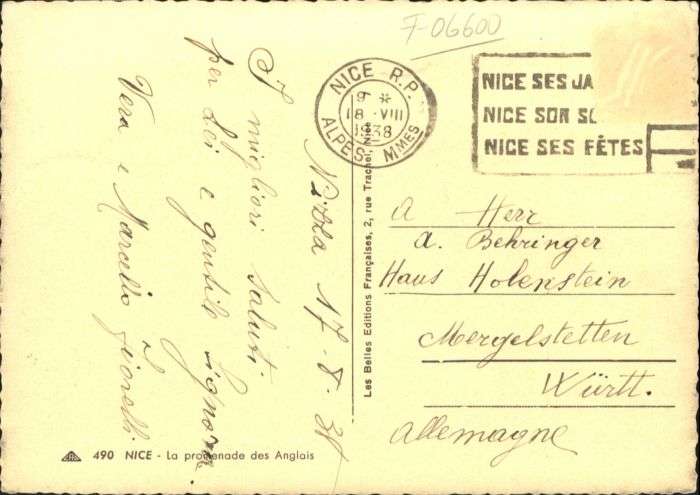 F-06600
NICE R.P.
9 *
18 VIII
1938
ALPES MMES
NICE SES JA
NICE SON SO
NICE SES FÊTES
Nizza 17-8-38
I migliori saluti
per Lei e gentile Signora
Vera e Marcello Fiorelli
Les Belles Editions Françaises, 2, rue Trachel, Nice
A Herr
A. Behringer
Haus Holenstein
Mergelstetten
Württ.
Allemagne
490 NICE - La promenade des Anglais